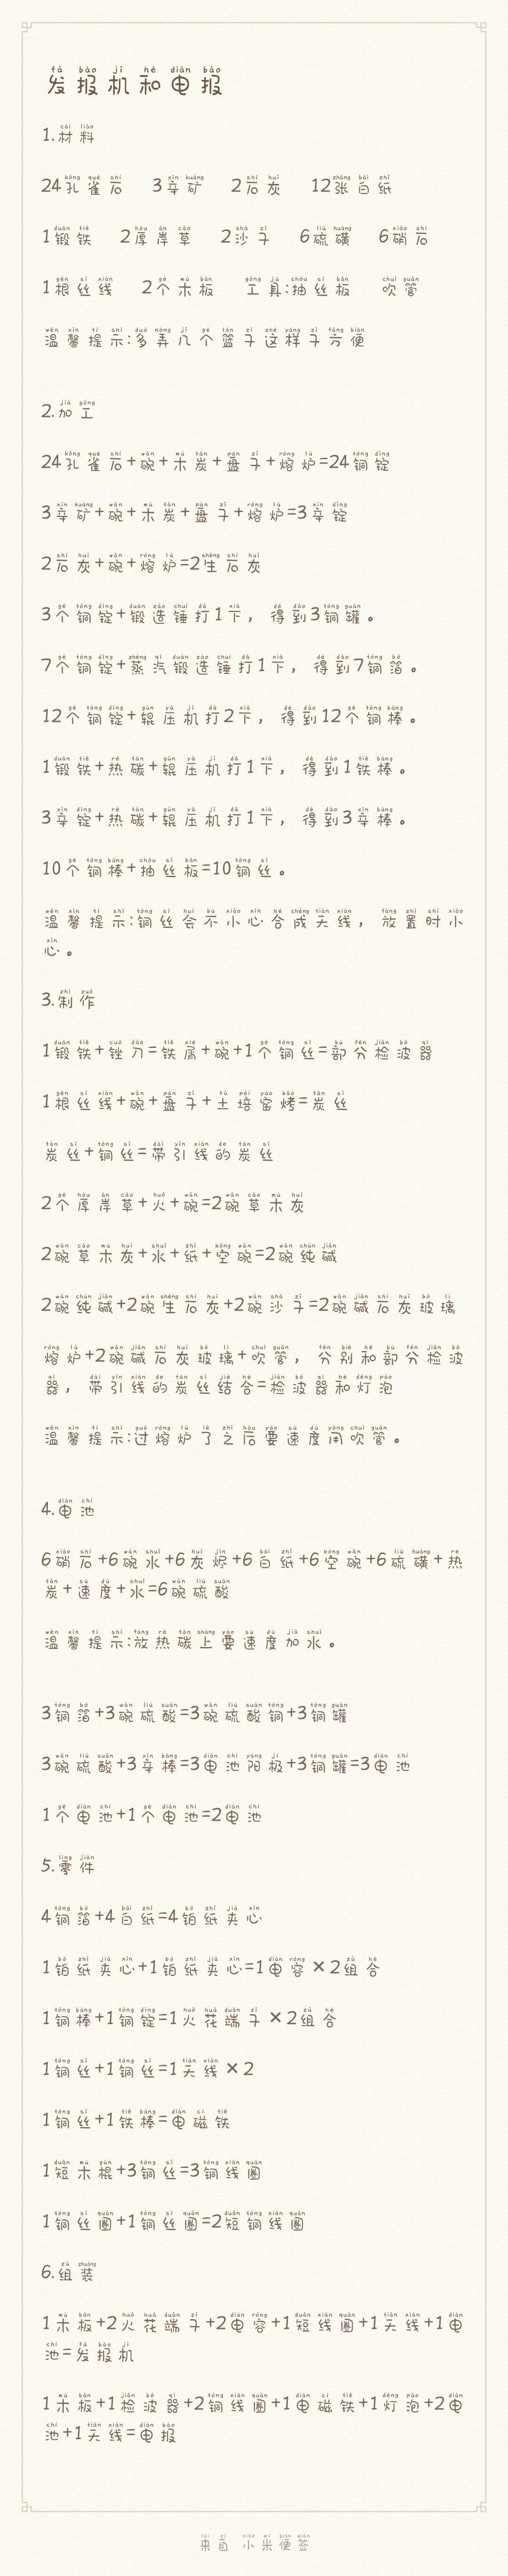 发报机和电报
1.材料
24孔雀石 3辛矿 2石灰 12张白纸
1锻铁 2厚岸草 2沙子 6硫磺 6硝石
1根丝线 2个木板 工具:抽丝板 吹管
温馨提示:多弄几个篮子这样子方便
2.加工
24孔雀石+碗+木炭+盘子+熔炉=24铜锭
3辛矿+碗+木炭+盘子+熔炉=3辛锭
2石灰+碗+熔炉=2生石灰
3个铜锭+锻造锤打1下，得到3铜罐。
7个铜锭+蒸汽锻造锤打1下，得到7铜箔。
12个铜锭+辊压机打2下，得到12个铜棒。
1锻铁+热碳+辊压机打1下，得到1铁棒。
3辛锭+热碳+辊压机打1下，得到3辛棒。
10个铜棒+抽丝板=10铜丝。
温馨提示:铜丝会不小心合成天线，放置时小
心。
3.制作
1锻铁+锉刀=铁屑+碗+1个铜丝=部分检波器
1根丝线+碗+盘子+土培窑烤=炭丝
炭丝+铜丝=带引线的炭丝
2个厚岸草+火+碗=2碗草木灰
2碗草木灰+水+纸+空碗=2碗纯碱
2碗纯碱+2碗生石灰+2碗沙子=2碗碱石灰玻璃
熔炉+2碗碱石灰玻璃+吹管，分别和部分检波
器，带引线的炭丝结合=检波器和灯泡
温馨提示:过熔炉了之后要速度用吹管。
4.电池
6硝石+6碗水+6灰烬+6白纸+6空碗+6硫磺+热
炭+速度+水=6碗硫酸
温馨提示:放热碳上要速度加水。
3铜箔+3碗硫酸=3碗硫酸铜+3铜罐
3碗硫酸+3辛棒=3电池阳极+3铜罐=3电池
1个电池+1个电池=2电池
5.零件
4铜箔+4白纸=4铂纸夹心
1铂纸夹心+1铂纸夹心=1电容×2组合
1铜棒+1铜锭=1火花端子×2组合
1铜丝+1铜丝=1天线×2
1铜丝+1铁棒=电磁铁
1短木棍+3铜丝=3铜线圈
1铜丝圈+1铜丝圈=2短铜线圈
6.组装
1木板+2火花端子+2电容+1短线圈+1天线+1电
池=发报机
1木板+1检波器+2铜线圈+1电磁铁+1灯泡+2电
池+1天线=电报
来自 小米便签